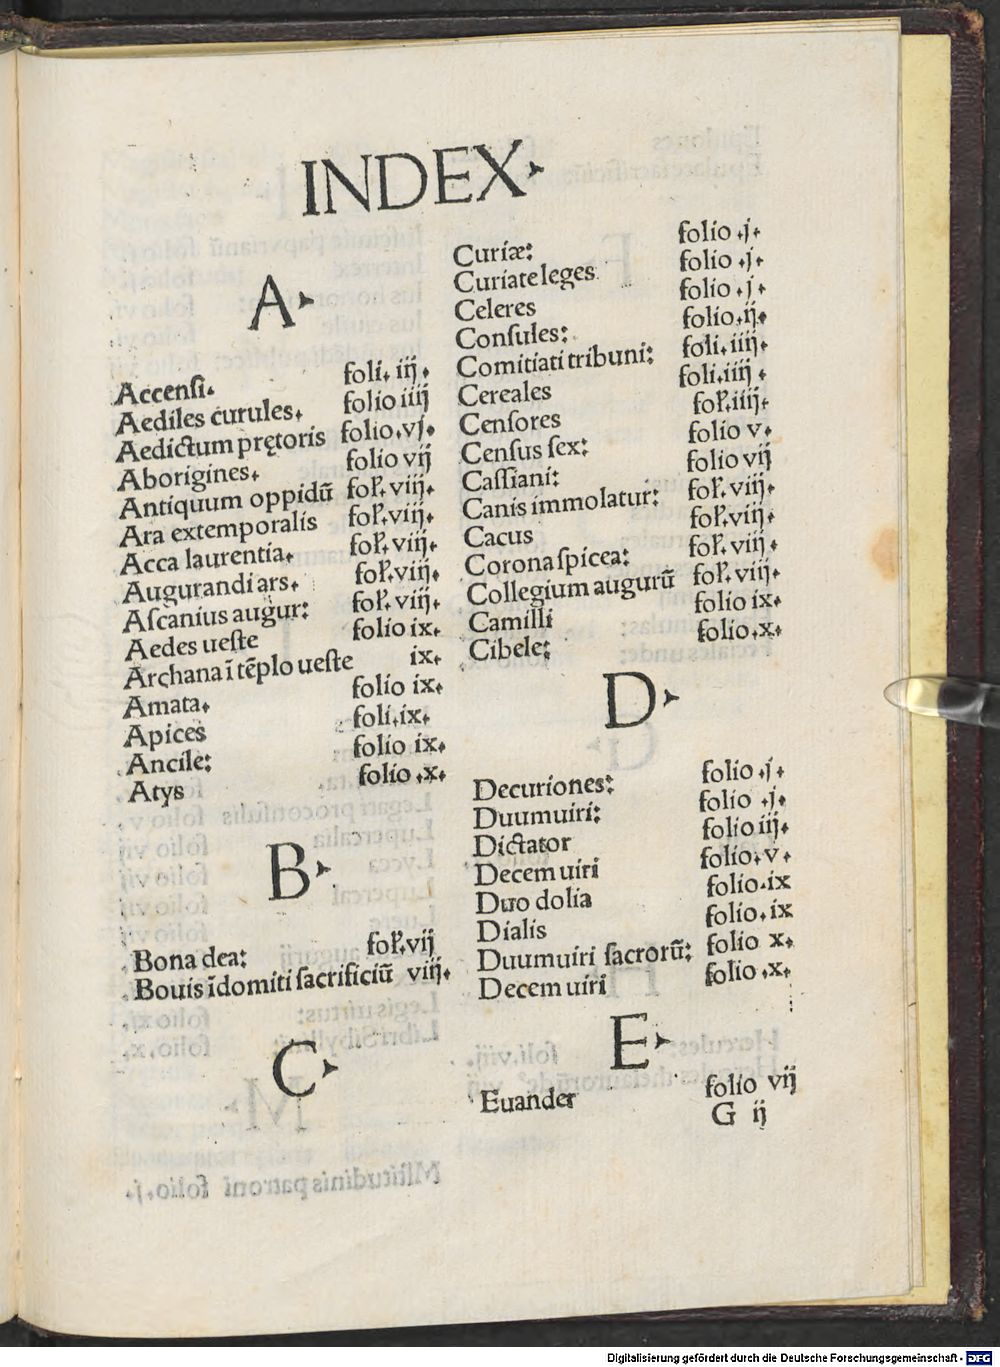 INDEX.
A.
Accensi. foli. iij.
Aediles curules. folio iiij
Aedictum prętoris folio.vj.
Aborigines. folio vij
Antiquum oppidū fol. viij.
Ara extemporalis fol.viij.
Acca laurentia. fol. viij.
Augurandi ars. fol.viij.
Aſcanius augur: fol. viij.
Aedes ueſte folio ix.
Archana ī tēplo ueſte ix.
Amata. folio ix.
Apices foli.ix.
Ancile: folio ix.
Atys folio .x.
B.
Bona dea: fol.vij
Bouis īdomiti ſacrificiū viij.
C.
Curiæ: folio .j.
Curiate leges folio .j.
Celeres folio .j.
Conſules: folio.ij.
Comitiati tribuni: foli. iiij.
Cereales foli.iiij.
Cenſores fol.iiij.
Cenſus ſex: folio v.
Caſſiani: folio vij
Canis immolatur: fol. viij.
Cacus fol.viij.
Corona ſpicea: fol. viij.
Collegium augurū fol. viij.
Camilli folio ix.
Cibele: folio.x.
D.
Decuriones: folio .j.
Duumuiri: folio .j.
Dictator folio iij.
Decem uiri folio. v.
Duo dolia folio.ix
Dialis folio.ix
Duumuiri ſacrorū: folio x.
Decem uiri folio .x.
E.
Euander folio vij
G ij
Digitalisierung gefördert durch die Deutsche Forschungsgemeinschaft - DFG